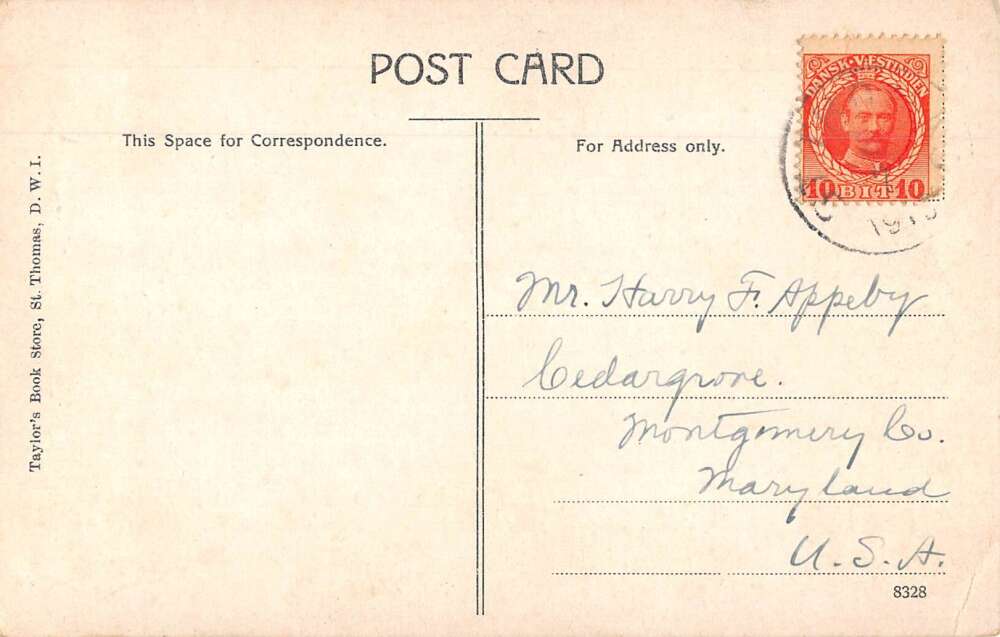 POST CARD
This Space for Correspondence.
For Address only.
DANSK-VESTINDIEN
10 BIT 10
Mr. Harry F. Appeby
Cedargrove.
Montgomery Co.
Maryland
U.S.A.
8328
Taylor's Book Store, St. Thomas, D. W. I.